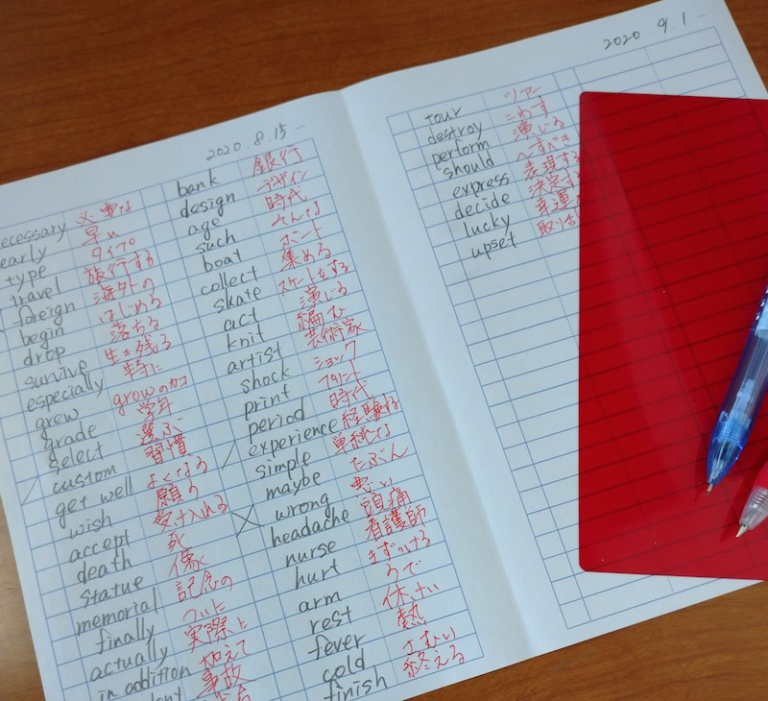 2020.8.15-
necessary 必要な
early 早い
type タイプ
travel 旅行する
foreign 海外の
begin はじめる
drop 落ちる
survive 生き残る
especially 特に
grew growのカコ
grade 学年
select 選ぶ
custom 習慣
get well よくなる
wish 願う
accept 受け入れる
death 死
statue 像
memorial 記念の
finally ついに
actually 実際に
in addition 加えて
事故
bank 銀行
design デザイン
age 時代
such そんな
boat ボート
collect 集める
skate スケートをする
act 演じる
knit 編む
artist 芸術家
shock ショック
print プリント
period 時代
experience 経験する
simple 単純な
maybe たぶん
wrong 悪い
headache 頭痛
nurse 看護師
hurt きずつける
arm うで
rest 休けい
fever 熱
cold さむい
finish 終える
2020.9.1-
tour ツアー
destroy こわす
perform 演じる
should ~すべき
express 表現する
decide 決定する
lucky 幸運
upset